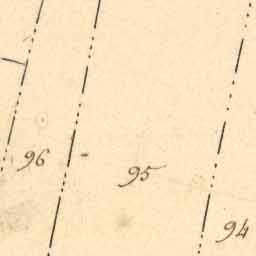 96
95
94